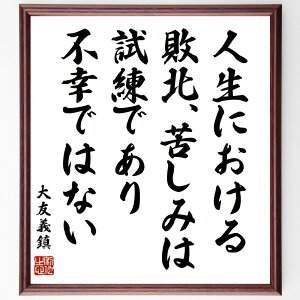 人生における
敗北、苦しみは
試練であり
不幸ではない
大友義鎮